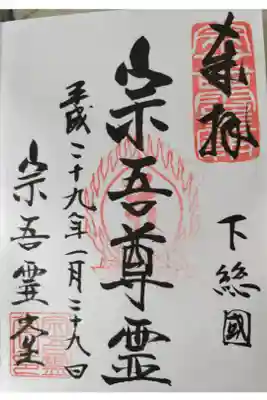 奉拝
下総國
宗吾尊霊
平成二十九年一月二十九日
宗吾霊堂